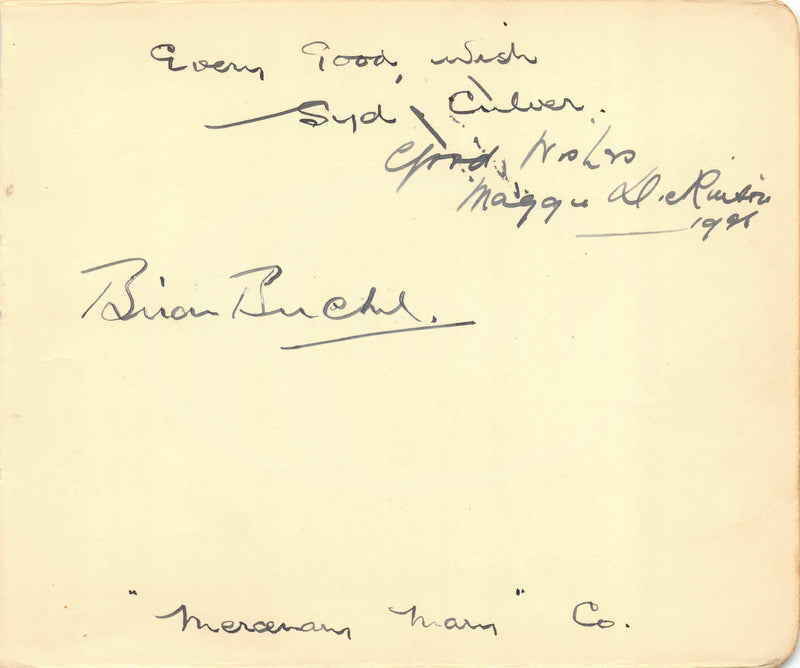 Every Good wish
Syd Culver.
Good Wishes
Maggie Dickinson
1926
Brian Buchel.
"Mercenary Mary" Co.